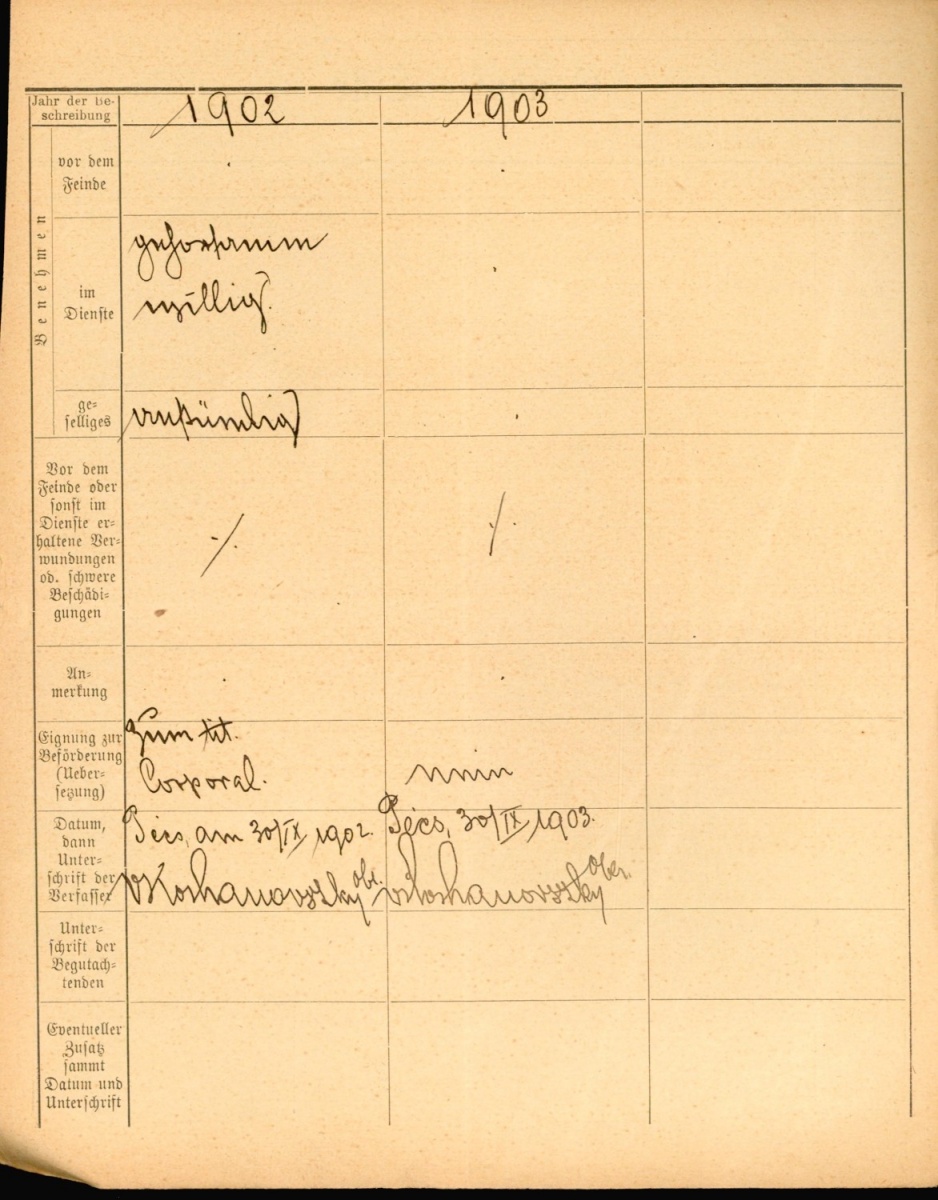 Jahr der Be-
schreibung
1902
1903
Benehmen
vor dem
Feinde
im
Dienste
gehorsamm
willig
ge-
selliges
anständig
Vor dem
Feinde oder
sonst im
Dienste er-
haltene Ver-
wundungen
od. schwere
Beschädi-
gungen
·/.
·/.
An-
merkung
Eignung zur
Beförderung
(Ueber-
setzung)
Zum tit.
Corporal.
nein
Datum,
dann
Unter-
schrift der
Verfasser
Pécs, am 30/IX 1902.
Pécs, 30/IX 1903.
Unter-
schrift der
Begutach-
tenden
Eventueller
Zusatz
sammt
Datum und
Unterschrift